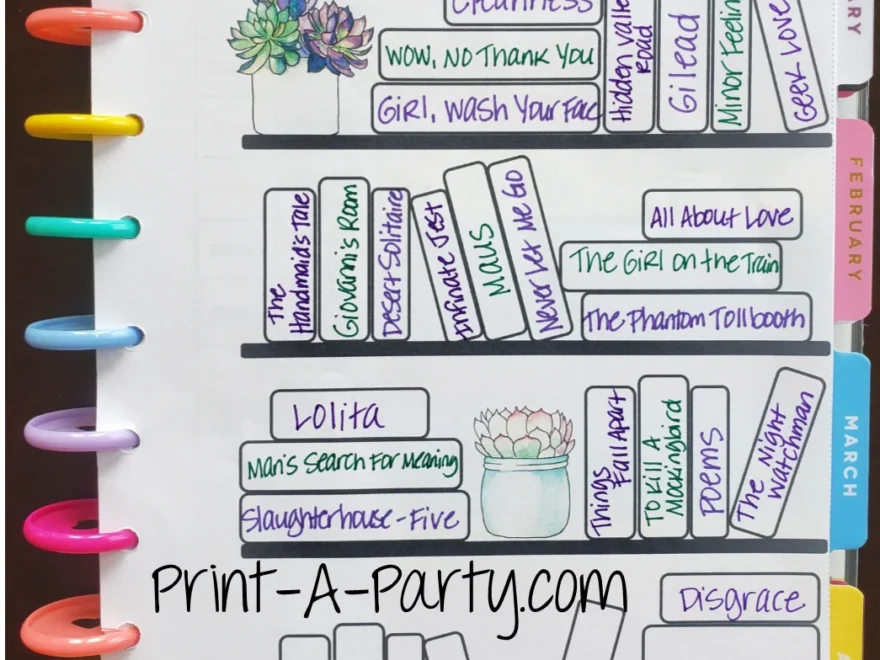 Cleanness
Wow, No Thank You
Girl, Wash Your Fac
Hidden Valle
Road
Gilead
Minor Feelin
Geek Love
ARY
The
Handmaid's Tale
Giovanni's Room
Desert Solitaire
Infinate Jest
Maus
Never Let Me Go
All About Love
The Girl on the Train
The Phantom Tollbooth
FEBRUARY
Lolita
Man's Search For Meaning
Slaughterhouse-Five
Things
Fall Apart
To Kill A
Mockingbird
Poems
The Night
Watchman
MARCH
Print-A-Party.com
Disgrace